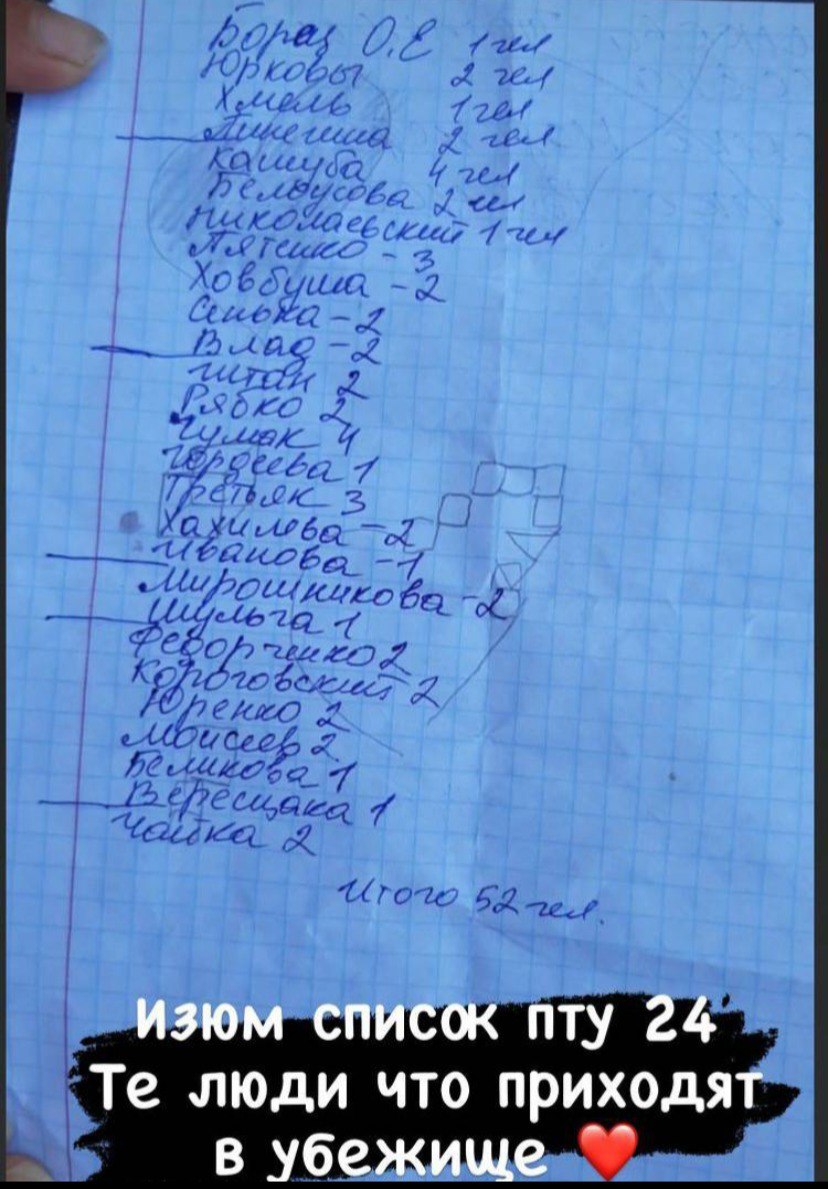 Борац О.Е 1 чел
Юрковы 2 чел
Хмель 1 чел
2 чел
Кашуба 4 чел
Белоусова 2 чел
Николаевский 1 чел
- 3
Ховбуша - 2
Сенька - 2
Влад - 2
Титан 2
Рябко 2
Чумак 4
Гордеева 1
Третьяк 3
Хахилева - 2
Иванова - 1
Мирошникова - 2
Шульга 1
Федорченко 2
Короговский 2
Юренко 2
Моисеев 2
Беликова 1
Верещака 1
Чайка 2
Итого 52 чел.
Изюм список пту 24
Те люди что приходят
в убежище ❤️